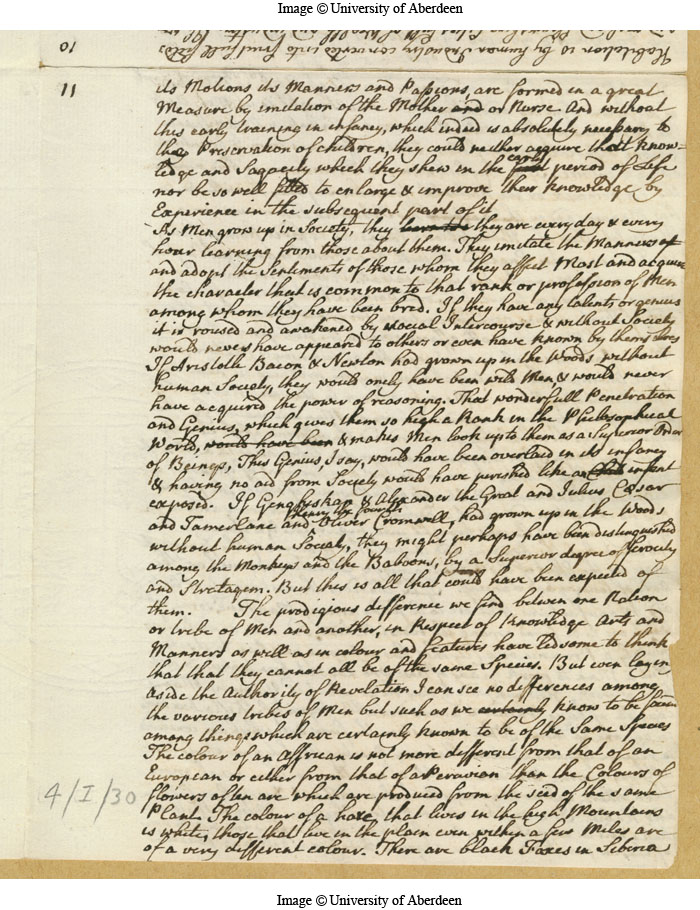 Image © University of Aberdeen
10
Habitation is by human Industry converted into fruitfull fields
11
its Motions its Manners and Passions, are formed in a great
Measure by imitation of the Mother and or Nurse. And without
this early training in infancy, which indeed is absolutely necessary to
the Preservation of children, they could neither acquire that know=
ledge and Sagacity which they shew in the first early period of Life
nor be so well fitted to enlarge & improve their knowledge by
Experience in the subsequent part of it
As Men grow up in Society, they learn the they are every day & every
hour learning from those about them. They imitate the Manners of
and adopt the Sentiments of those whom they affect Most and acquire
the character that is common to that rank or profession of Men
among whom they have been bred. If they have any talents or genius
it is roused and awakened by social Intercourse & without Society
would never have appeared to others or even have known by themselves
If Aristotle Bacon & Newton had grown up in the Woods without
human Society, they would only have been wild Men & would never
have acquired the power of reasoning. That wonderfull Penetration
and Genius, which gives them so high a Rank in the Philosophical
World, would have been & makes Men look up to them as a Superior Order
of Beings, This Genius, I say, would have been overlaid in its infancy
& having no aid from Society would have perished like an infant
exposed. If Genghiskan & Alexander the Great and Julius Cæsar
and Tamerlane and Henry the fourth Oliver Cromwell, had grown up in the Woods
without human Society, they might perhaps have been distinguished
among the Monkeys and the Baboons, by a Superior degree of ferocity
and Stratagem. But this is all that could have been expected of
them. The prodigious difference we find between one Nation
or tribe of Men and another, in Respect of Knowledge Arts and
Manners as well as in colour and features have led some to think
that that they cannot all be of the same Species. But even laying
aside the Authority of Revelation I can see no differences among
the various tribes of Men but such as we certainly know to be found
among things which are certainly known to be of the Same Species
The colour of an Affrican is not more different from that of an
European or either from that of a Peruvian than the Colours of
flowers often are which are produced from the seed of the same
Plant. The colour of a hare, that lives in the high Mountains
is white, those that live in the plain even within a few Miles are
of a very different colour. There are black Foxes in Siberia
4/I/30
Image © University of Aberdeen